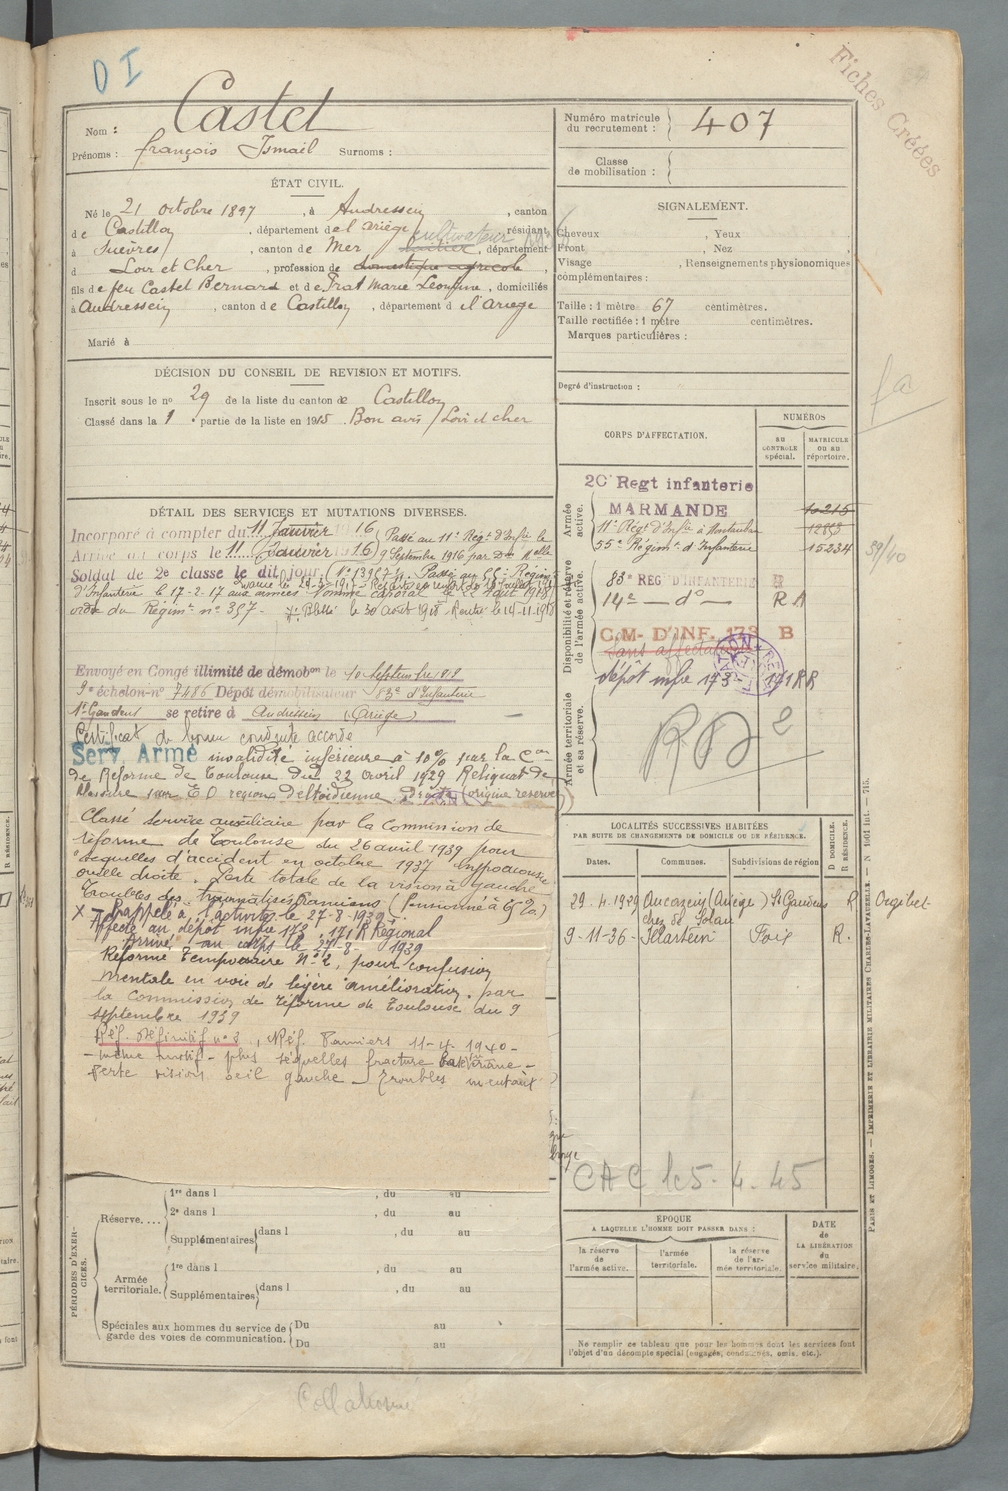 D I
Fiches Créées
Nom : Castel
Prénoms : françois Ismail Surnoms :
Numéro matricule du recrutement : 407
Classe de mobilisation :
ÉTAT CIVIL.
Né le 21 octobre 1897, à Andressein, canton
de Castillon, département de l'ariège cultivateur résidant
à Suèvres, canton de Mer laitier, département
d Loir et Cher, profession de domestique agricole,
fils de feu Castel Bernard et de Prat Marie Léonfine, domiciliés
à Audressein, canton de Castillon, département d el Ariege
Marié à
SIGNALEMENT.
Cheveux , Yeux ,
Front , Nez
Visage , Renseignements physionomiques
complémentaires :
Taille : 1 mètre 67 centimètres.
Taille rectifiée : 1 mètre centimètres.
Marques particulières :
Degré d'instruction :
DÉCISION DU CONSEIL DE REVISION ET MOTIFS.
Inscrit sous le no 29 de la liste du canton de Castillon
Classé dans la 1 e partie de la liste en 1915 . Bon avis / Loir et cher
CORPS D'AFFECTATION.
NUMÉROS
AU CONTROLE spécial.
MATRICULE OU AU répertoire.
Armée active.
20e Regt infanterie
MARMANDE 10215
11e Régt d'Infie à Montauban
55e Régimt d'Infanterie 15234
39/40
Disponibilité et réserve de l'armée active.
83e REG D'INFANTERIE
14e — do — R A
C.M- D'INF. 173 B
Sans affectation
dépôt infie 173 - 171 RR
Armée territoriale et sa réserve.
RD 2
DÉTAIL DES SERVICES ET MUTATIONS DIVERSES.
Incorporé à compter du 11 Janvier 1916, Passé au 11e Régt d'Infie le
Arrivé au corps le 11 Janvier 1916, 9 Septembre 1916 par Don Melle
Soldat de 2e classe le dit jour. Passé au 55e Régiment
d'Infanterie le 17-2-17 aux armées Nommé caporal le 22 Août 1918
ordre du Régimt no 357 - Blessé le 30 Août 1918 Rentré le 14-11-1918
Envoyé en Congé illimité de démobon le 10 Septembre 1919
9e échelon-no 7486 Dépôt démobilisateur 83e d'Infanterie
St Gaudens se retire à Audressein (Ariège)
Certificat de bonne conduite accordé
Serv. Armé invalidité inférieure à 10% par la Con
de Réforme de Toulouse du 22 avril 1929 Reliquat de
blessure par E O région deltoïdienne droite (origine reserve)
Classé service auxiliaire par la Commission de
réforme de Toulouse du 26 avril 1939 pour
séquelles d'accident en octobre 1937
oreille droite. Perte totale de la vision à gauche
Troubles des traumatisés craniens (Pensionné à 65%)
X — Rappelé à l'activité le 27-8-1939
Affecté au dépôt infie 173, 171 R Régional
Arrivé au corps le 27-8- 1939
Réformé temporaire No 2, pour confusion
mentale en voie de légère amélioration, par
la Commission de réforme de Toulouse du 9
septembre 1939
Réf. définitif no 2, Réf. Pamiers 11-4-1940 -
- même motif - plus séquelles fracture
Perte vision oeil gauche - Troubles mentaux
LOCALITÉS SUCCESSIVES HABITÉES
PAR SUITE DE CHANGEMENTS DE DOMICILE OU DE RÉSIDENCE.
Dates. Communes. Subdivisions de région
D DOMICILE.
R RÉSIDENCE.
29-4-1929 Aucazein (Ariège) St Gaudens R Orgibet
chez de Solan
9-11-36- Illartein Foix R.
CAC le 5-4-45
PÉRIODES D'EXERCICES.
Réserve....
1re dans l , du au
2e dans l , du au
Supplémentaires dans l , du au
Armée territoriale.
1re dans l , du au
Supplémentaires dans l , du au
Spéciales aux hommes du service de garde des voies de communication.
Du au
Du au
ÉPOQUE
A LAQUELLE L'HOMME DOIT PASSER DANS :
la réserve de l'armée active.
l'armée territoriale.
la réserve de l'armée territoriale.
DATE de LA LIBÉRATION du service militaire.
Ne remplir ce tableau que pour les hommes dont les services font
l'objet d'un décompte spécial (engagés, condamnés, omis, etc.).
PARIS ET LIMOGES. — IMPRIMERIE ET LIBRAIRIE MILITAIRES CHARLES-LAVAUZELLE. — N 1601 int. — 715.
Collationné